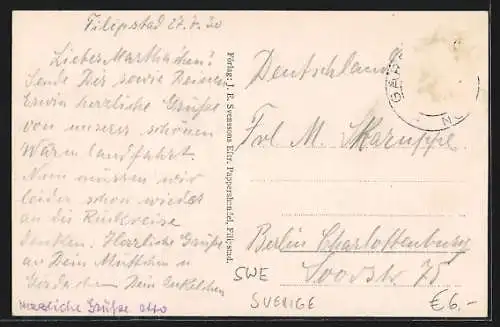 Filipstad 27.7.30
Lieber Marthachen!
Sende Dir sowie Deinem
Erwin herzliche Grüße
von unserer schönen
Wärmlandfahrt.
Nun müssen wir
leider schon wieder
an die Rückreise
denken. Herzliche Grüße
an Dein Muttchen u.
Dein Onkelchen
herzliche Grüße Otto
Förlag: J. E. Svenssons Eftr. Pappershandel, Filipstad.
Deutschland
Frl M. Skaruppe.
Berlin Charlottenburg
Soorstr. 75
SWE
SVERIGE
€6.-